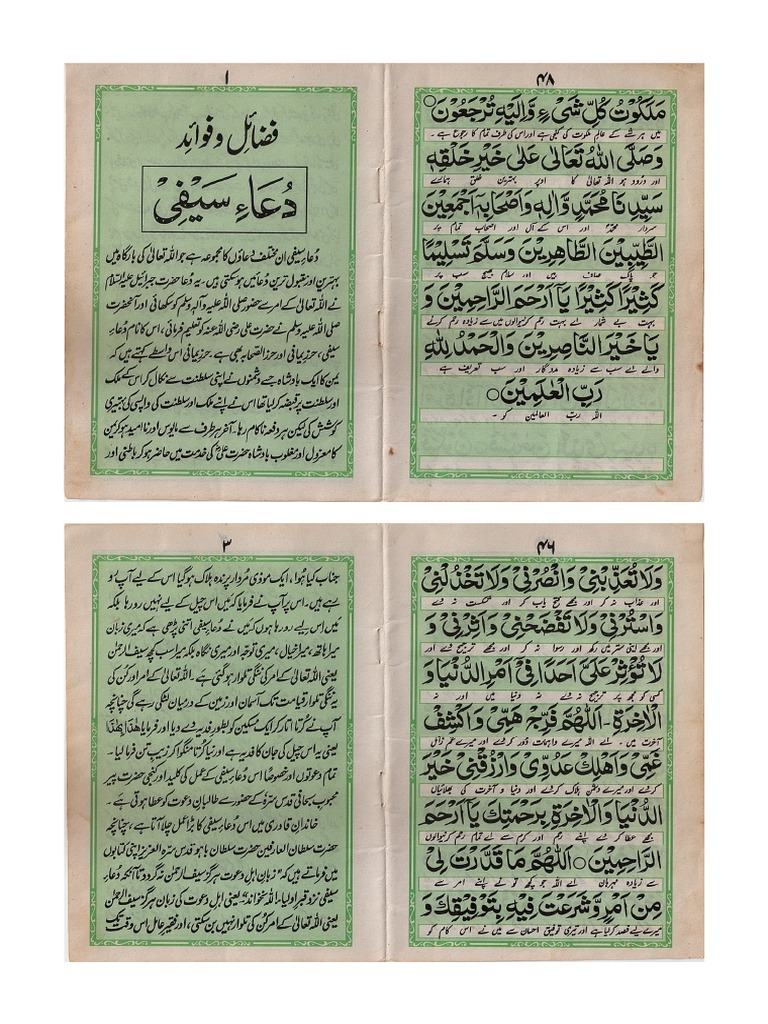 ۴۸
مَلَكُوْتُ كُلِّ شَيْءٍ وَّاِلَيْهِ تُرْجَعُوْنَ○
میں ہر شے کے عالم ملکوت کی کنجی ہے اور اس کی طرف تمام کا رجوع ہے ۔
وَصَلَّى اللّٰهُ تَعَالٰى عَلٰى خَيْرِ خَلْقِهٖ
اور درود ہو اللہ تعالیٰ کا اوپر بہترین خلق ہمارے
سَيِّدِنَا مُحَمَّدٍ وَّاٰلِهٖ وَاَصْحَابِهٖٓ اَجْمَعِيْنَ
سردار محمدؐ اور اس کے آل اور اصحاب تمام پر
الطَّيِّبِيْنَ الطَّاهِرِيْنَ وَسَلَّمَ تَسْلِيْمًا
جو پاک صاف ہیں اور سلام بھیج سب پر
كَثِيْرًا كَثِيْرًا يَآ اَرْحَمَ الرَّاحِمِيْنَ وَ
بہت بے شمار اے بہت رحم کرنیوالوں میں سے زیادہ رحم کرنے
يَا خَيْرَ النَّاصِرِيْنَ وَالْحَمْدُ لِلّٰهِ
والے اے سب سے زیادہ مددگار اور سب تعریف ہے
رَبِّ الْعٰلَمِيْنَ○
اللہ ربّ العالمین کو ۔
۱
فضائل و فوائد
دُعَاءِ سَيْفِىْ
دُعاءِ سیفی ان مختلف دعاؤں کا مجموعہ ہے جو اللہ تعالیٰ کی بارگاہ میں
بہترین اور مقبول ترین دعائیں ہو سکتی ہیں۔ یہ دعا حضرت جبرائیل علیہ السلام
نے اللہ تعالیٰ کے امر سے حضور صلی اللہ علیہ و آلہٖ وسلم کو سکھائی اور آنحضرت
صلی اللہ علیہ وسلم نے حضرت علی رضی اللہ عنہ کو تعلیم فرمائی، اس کا نام دُعاءِ
سیفی، حرزِ یمانی اور حرز الصحابہ بھی ہے۔ حرزِ یمانی اس واسطے کہتے ہیں کہ
یمن کا ایک بادشاہ جسے دشمنوں نے اپنی سلطنت سے نکال کر اس کے ملک
اور سلطنت پر قبضہ کر لیا تھا اس نے اپنے ملک اور سلطنت کی واپسی کی بہتیری
کوشش کی لیکن ہر دفعہ ناکام رہا۔ آخر ہر طرف سے مایوس اور نااُمید ہو کر یمن
کا معزول اور مغلوب بادشاہ حضرت علیؓ کی خدمت میں حاضر ہو کر باطنی اور
۴۶
وَلَا تُعَذِّبْنِيْ وَانْصُرْنِيْ وَلَا تَخْذُلْنِيْ
اور عذاب نہ کر اور مجھے فتح یاب کر اور شکست نہ دے
وَاسْتُرْنِيْ وَلَا تَفْضَحْنِيْ وَاٰثِرْنِيْ وَ
اور مجھے اپنی ستر میں رکھ اور رسوا نہ کر اور مجھے ترجیح دے اور
لَا تُؤْثِرْ عَلَيَّ اَحَدًا فِيْٓ اَمْرِ الدُّنْيَا وَ
کسی کو مجھ پر ترجیح نہ دے نہ دنیا میں اور نہ
الْاٰخِرَةِ۔ اَللّٰهُمَّ فَرِّجْ هَمِّيْ وَاكْشِفْ
آخرت میں۔ اے اللہ میرے واہمات دور کر دے اور میرے غم زائل
غَمِّيْ وَاَهْلِكْ عَدُوِّيْ وَارْزُقْنِيْ خَيْرَ
کر دے اور میرے دشمن ہلاک کر دے اور دنیا و آخرت کی بھلائیاں
الدُّنْيَا وَالْاٰخِرَةِ بِرَحْمَتِكَ يَآ اَرْحَمَ
مجھے عطا کر دے اپنے رحم اور کرم سے اے تمام رحم کرنیوالوں
الرَّاحِمِيْنَ○ اَللّٰهُمَّ مَا قَدَّرْتَ لِيْ
سے زیادہ مہربان اے اللہ جو کچھ تو نے اپنے امر سے
مِنْ اَمْرٍ وَّشَرَعْتَ فِيْهِ بِتَوْفِيْقِكَ وَ
میرے لیے قصد کر لیا ہے اور تیری توفیق احسان سے میں نے اس کام کو
۳
جناب کیا ہُوا، ایک موذی مُردار پرندہ ہلاک ہو گیا اس کے لیے آپ رو
رہے ہیں۔ اس پر آپ نے فرمایا کہ مَیں اس چیل کے لیے نہیں رو رہا بلکہ
مَیں اس لیے رو رہا ہوں کہ مَیں نے دُعاءِ سیفی اتنی پڑھی ہے کہ میری زبان
میرا ہاتھ، میرا خیال، میری توجّہ اور میری نگاہ بلکہ میرا سب کچھ سیف الرحمٰن
یعنی اللہ تعالیٰ کے امر کی ننگی تلوار ہو گئی ہے۔ اللہ تعالیٰ کے امر اور کُن کی
یہ ننگی تلوار قیامت تک آسمان اور زمین کے درمیان لٹکی رہے گی چنانچہ
آپ نے کُرتا اُتار کر ایک مسکین کو بطور فدیہ دے دیا اور فرمایا هٰذَا بِهٰذَا
یعنی یہ اس چیل کی جان کا فدیہ ہے اور نیا کُرتا منگوا کر زیبِ تن فرما لیا۔
تمام دعوتوں اور خصوصاً اس دُعاءِ سیفی کے عمل کی کلید اور کنجی حضرت پیر
محبوبِ سبحانی قدس سترہ کے حضور سے طالبانِ دعوت کو عطا ہوتی ہے۔
خاندانِ قادری میں اس دُعاءِ سیفی کا بڑا عمل چلا آتا ہے، چنانچہ
حضرت سلطان العارفین حضرت سلطان باہو قدس سرہ العزیز اپنی کتابوں
میں فرماتے ہیں کہ "زبانِ اہلِ دعوت ہرگز سیف الرحمٰن نہ گردد تا آنکہ دُعاءِ
سیفی نزد قبرِ اولیاء اللہ نخواند" یعنی اہلِ دعوت کی زبان ہرگز سیف الرحمٰن
یعنی اللہ تعالیٰ کے امر کُن کی تلوار نہیں بن سکتی، اور فقیر عامل اس وقت تک